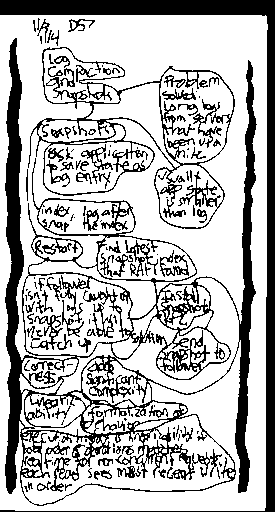 11/14 DS7
Log
Compaction
and
Snapshots
Problem
solved:
long logs
from servers
that have
been up a
while
Snapshots
Ask application
to save state as
log entry
Usually
app state
is smaller
than log
index, log after
the index
snap
Restart
Find latest
snapshot, index
that Raft found
if follower
isn't fully caught up
with logs up to
Snapshot, it will
never be able to
Catch up
solution
Install
Snapshot
Send
snapshot to
follower
Correct
ness
adds
Significant
Complexity
Linear
ability
formalization of
behavior
execution history is linearizability if
total order of operations matches
real time for non concurrent requests,
each read sees most recent write
in order